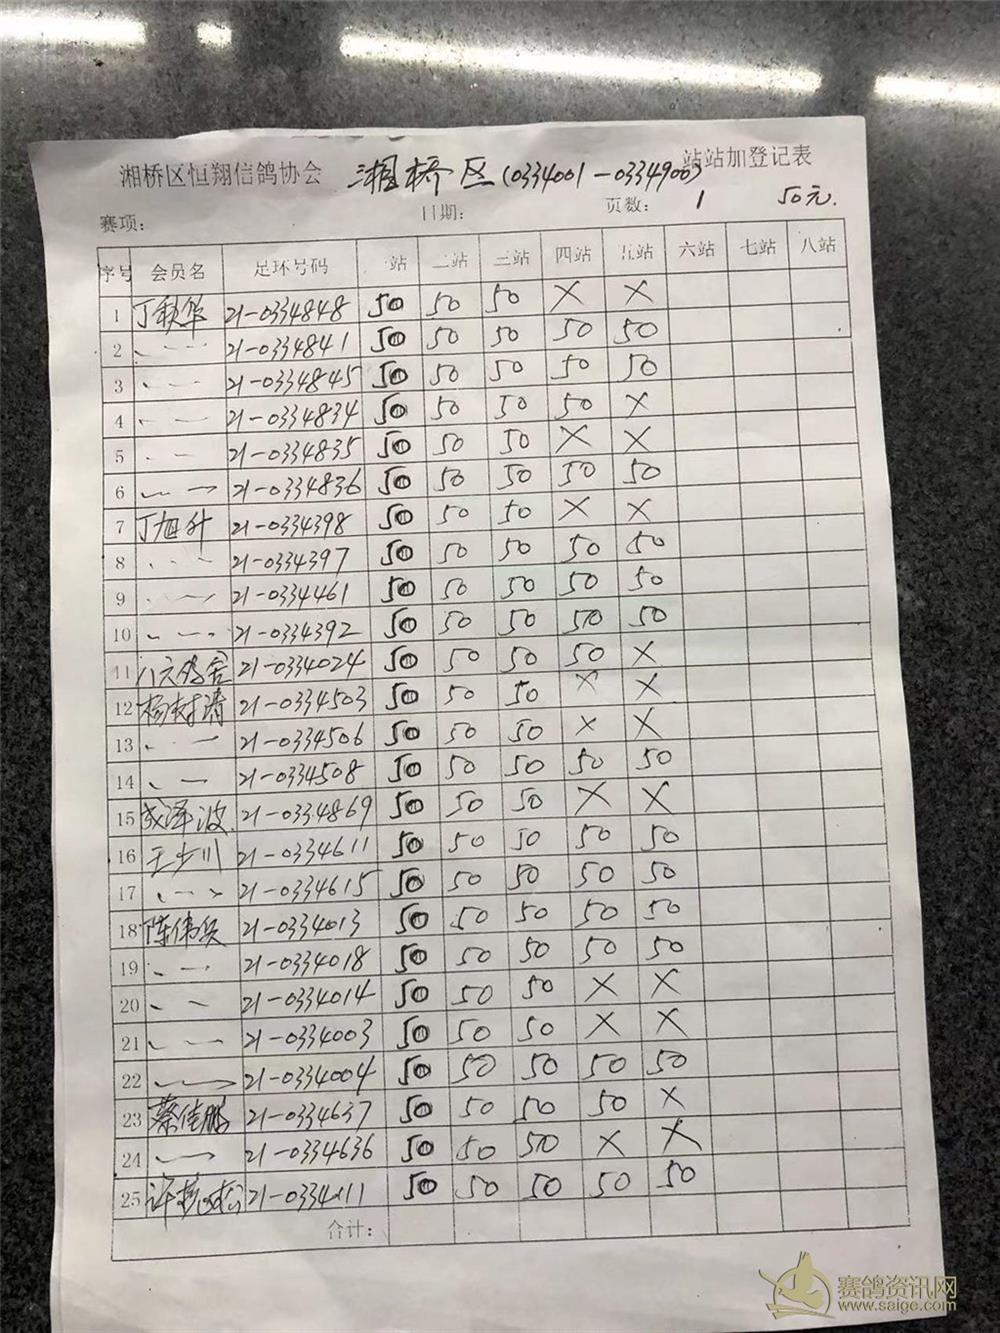 湘桥区恒翔信鸽协会 湘桥区(0334001-0334900) 站站加登记表
赛项: 日期: 页数: 1 50元.
序号 会员名 足环号码 一站 二站 三站 四站 五站 六站 七站 八站
1 丁秋华 21-0334848 50 50 50 × ×
2 21-0334841 50 50 50 50 50
3 21-0334845 50 50 50 50 50
4 21-0334834 50 50 50 50 ×
5 21-0334835 50 50 50 × ×
6 21-0334836 50 50 50 50 50
7 丁旭升 21-0334398 50 50 50 × ×
8 21-0334397 50 50 50 50 50
9 21-0334461 50 50 50 50 50
10 21-0334392 50 50 50 50 50
11 八六鸽舍 21-0334024 50 50 50 50 ×
12 杨树涛 21-0334503 50 50 50 × ×
13 21-0334506 50 50 50 × ×
14 21-0334508 50 50 50 50 50
15 泽波 21-0334869 50 50 50 × ×
16 王少川 21-0334611 50 50 50 50 50
17 21-0334615 50 50 50 50 50
18 陈伟 21-0334013 50 50 50 50 50
19 21-0334018 50 50 50 50 50
20 21-0334014 50 50 50 × ×
21 21-0334003 50 50 50 × ×
22 21-0334004 50 50 50 50 50
23 蔡佳鹏 21-0334637 50 50 50 50 ×
24 21-0334636 50 50 50 × ×
25 许 50 50 50 50 50
合计:
赛鸽资讯网
www.saige.com